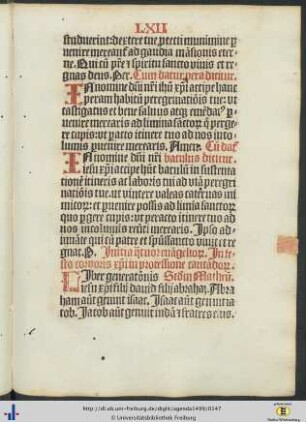 LXII
studuerint: dextere tue ꝓtecti munimine ꝑ
uenire mereant᷑ ad gaudia mãsionis eter-
ne. Qui cũ pr̃e ⁊ spiritu sancto viuis et re
gnas deus. Per. Cum datur pera dicitur.
IN nomine dñi nr̃i ihũ xp̃i accipe hanc
peram habitũ peregrinatiõis tue: vt
castigatus et bene saluus atqꝫ emẽdat᷒ ꝑ-
uenire merearis ad limina sãctor̃ q̃ perge
re cupis: vt ꝑacto itinere tuo ad nos inco-
lumis ꝑuenire merearis. Amen. Cũ dat᷑
IN nomine dñi nr̃i baculus dicitur.
iesu xp̃i accipe hũc baculũ in sustenta
tionẽ itineris ac laboris tui ad viã peregri
natiõis tue. vt vincere valeas cateruas ini
micor̃: et ꝑuenire possis ad limina sanctor̃
quo ꝑgere cupis: vt peracto itinere tuo ad
nos incolumis reuerti merearis. Ipso ad-
iuuãte qui cũ patre et spũssancto viuit et re
gnat. P. Initia q̃tuor euãgelior̃. In fe-
sto corporis xp̃i in processione cantãdor̃.
Liber generationis Scd̃m Matheũ.
iesu xp̃i filij dauid filij abrahaz. Abra
ham aũt genuit isaac. Isaac aũt genuit ia
cob. Jacob aũt genuit iudã ⁊ fratres eius.
http://dl.ub.uni-freiburg.de/diglit/agenda1499/0147
© Universitätsbibliothek Freiburg